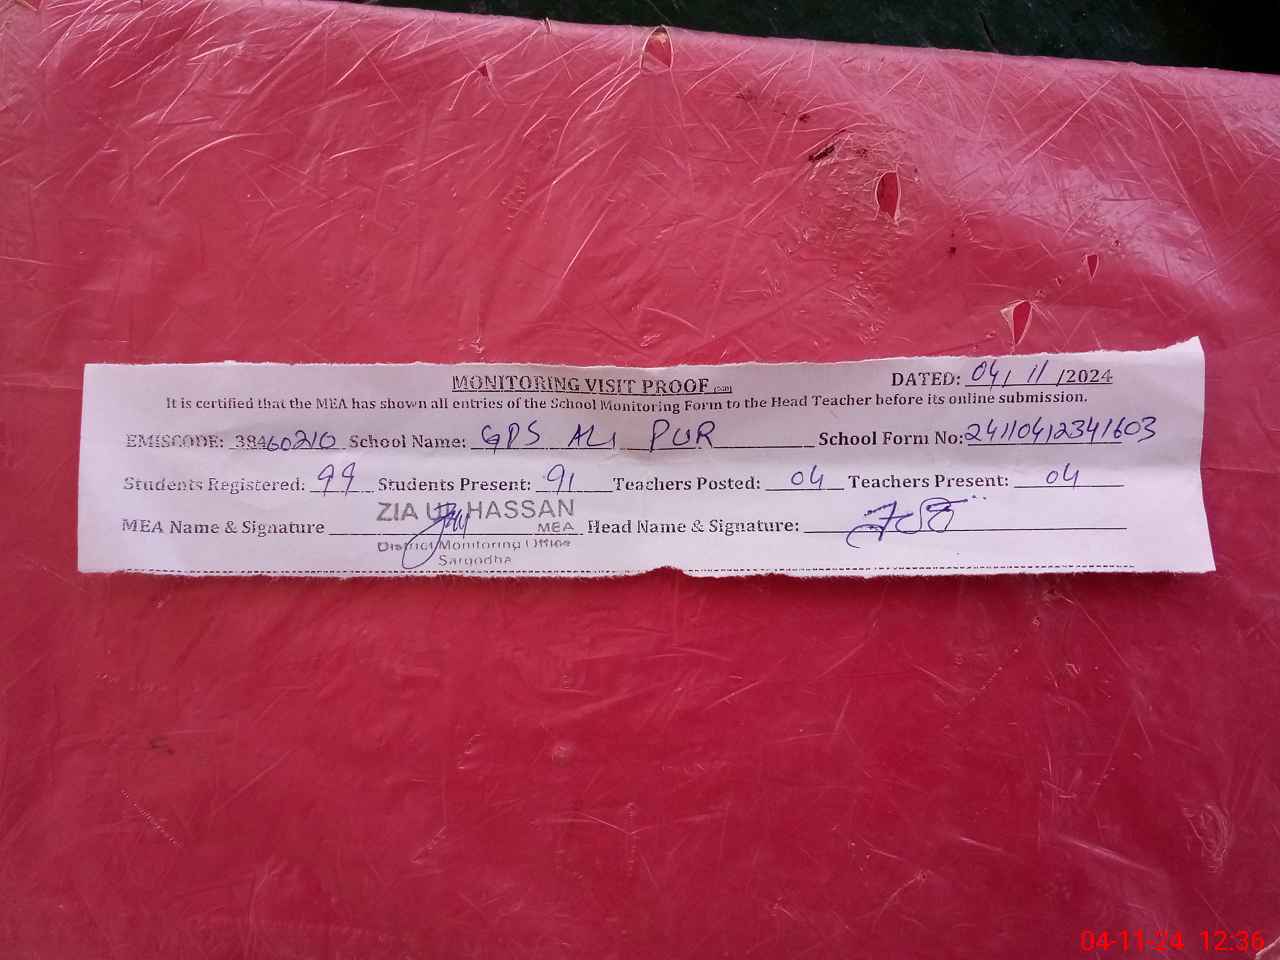 MONITORING VISIT PROOF
DATED: 04/11/2024
It is certified that the MEA has shown all entries of the School Monitoring Form to the Head Teacher before its online submission.
EMISCODE: 38460210 School Name: GPS ALI PUR School Form No: 24110412341603
Students Registered: 99 Students Present: 91 Teachers Posted: 04 Teachers Present: 04
MEA Name & Signature ZIA UL HASSAN Head Name & Signature:
MEA
District Monitoring Office
Sargodha
04-11-24 12:36